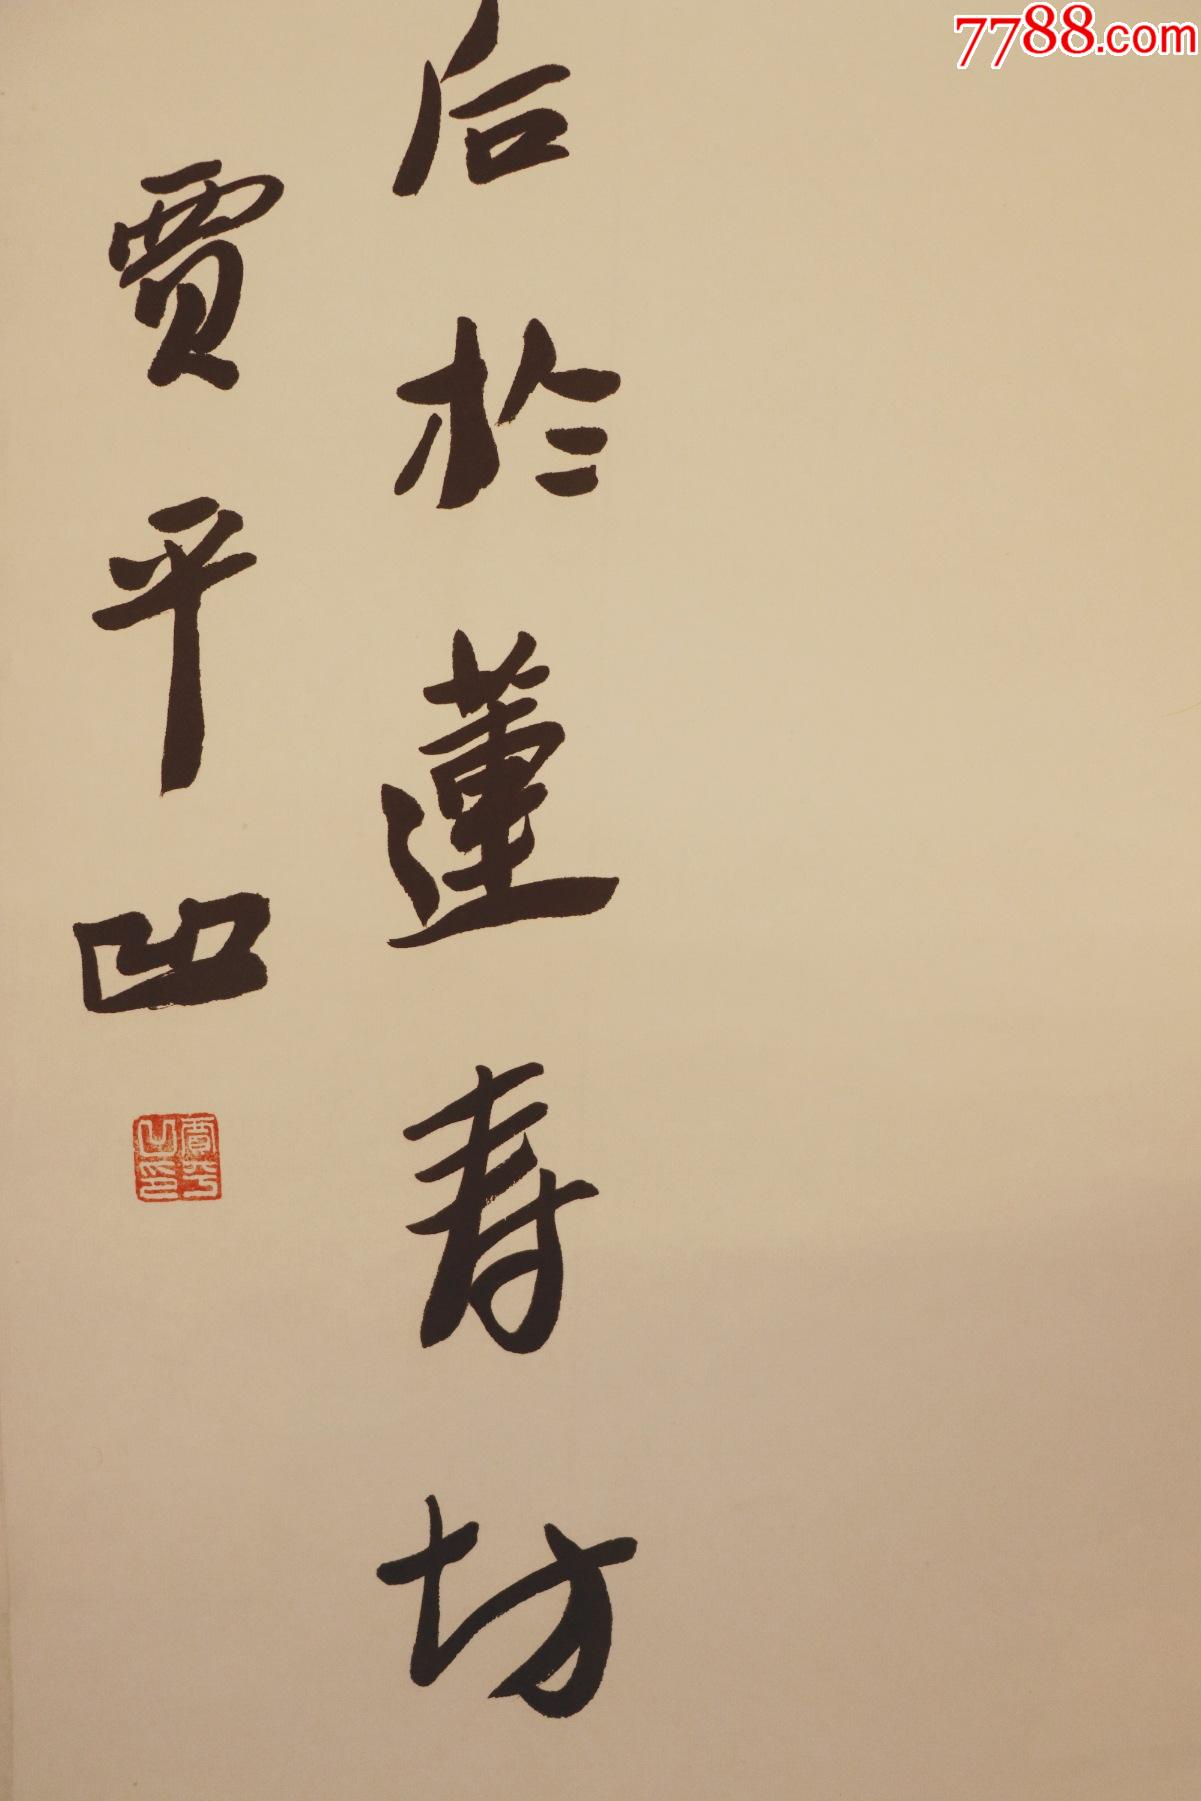 7788.com
后於蓮寿坊
贾平凹
賈平凹印